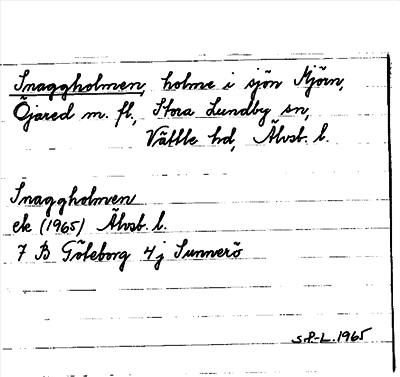 Snaggholmen, holme i sjön Mjörn,
Öjared m. fl., Stora Lundby sn,
Vättle hd, Älvsb. l.
Snaggholmen
ek (1965) Älvsb. l.
7 B Göteborg 4 j Sunnerö
S P-L. 1965